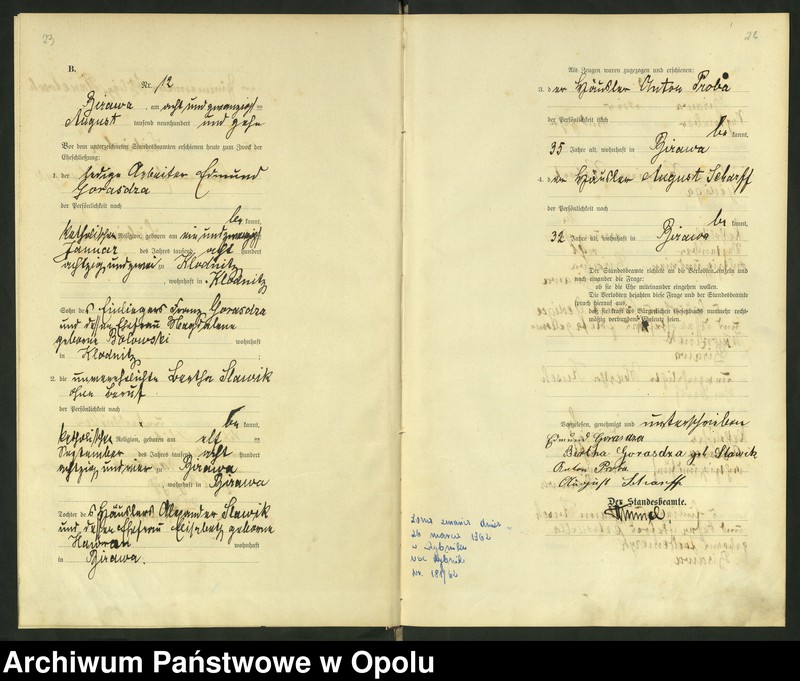 23
B.
Nr. 12
Birawa, am acht und zwanzigsten
August tausend neunhundert und zehn
Vor dem unterzeichneten Standesbeamten erschienen heute zum Zweck der
Eheschließung:
1. der ledige Arbeiter Edmund
Gorasdza
der Persönlichkeit nach
be kannt,
katholischer Religion, geboren am
Januar des Jahres tausend acht hundert
achtzig und zwei zu Klodnitz
, wohnhaft in Klodnitz
Sohn des Einliegers Franz Gorasdza
und dessen Ehefrau Magdalene
geborene wohnhaft
in Klodnitz ;
2. die unverehelichte Bertha Slawik
ohne Beruf
der Persönlichkeit nach
be kannt,
katholischer Religion, geboren am elf ten
September des Jahres tausend acht hundert
achtzig und vier zu Birawa
, wohnhaft in Birawa
Tochter des Häuslers Alexander Slawik
und dessen Ehefrau Elisabeth geborene
wohnhaft
in Birawa.
Als Zeugen waren zugezogen und erschienen:
3. der Häusler Anton Proba
der Persönlichkeit nach
be kannt,
35 Jahre alt, wohnhaft in Birawa
4. der Häusler August Scharff
der Persönlichkeit nach
be kannt,
32 Jahre alt, wohnhaft in Birawa
Der Standesbeamte richtete an die Verlobten einzeln und
nach einander die Frage:
ob sie die Ehe miteinander eingehen wollen.
Die Verlobten bejahten diese Frage und der Standesbeamte
sprach hierauf aus,
daß sie kraft des Bürgerlichen Gesetzbuchs nunmehr recht-
mäßig verbundene Eheleute seien.
Vorgelesen, genehmigt und unterschrieben
Edmund Gorasdza
Bertha Gorasdza geb Slawik
Anton Proba
August Scharff
Der Standesbeamte.
Żona zmarła dnia
26 marca 1962
w Rybniku
usc Rybnik
Nr. 181/62
Archiwum Państwowe w Opolu